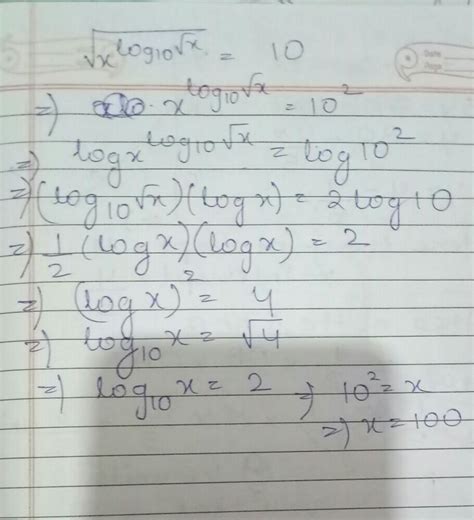 √x^log₁₀√x = 10
=) x^log₁₀√x = 10²
=) log x^log₁₀√x = log 10²
=) (log₁₀√x)(log x) = 2 log 10
=) 1/2 (log x)(log x) = 2
=) (log x)² = 4
=) log₁₀x = √4
=) log₁₀x = 2 =) 10² = x
=) x = 100